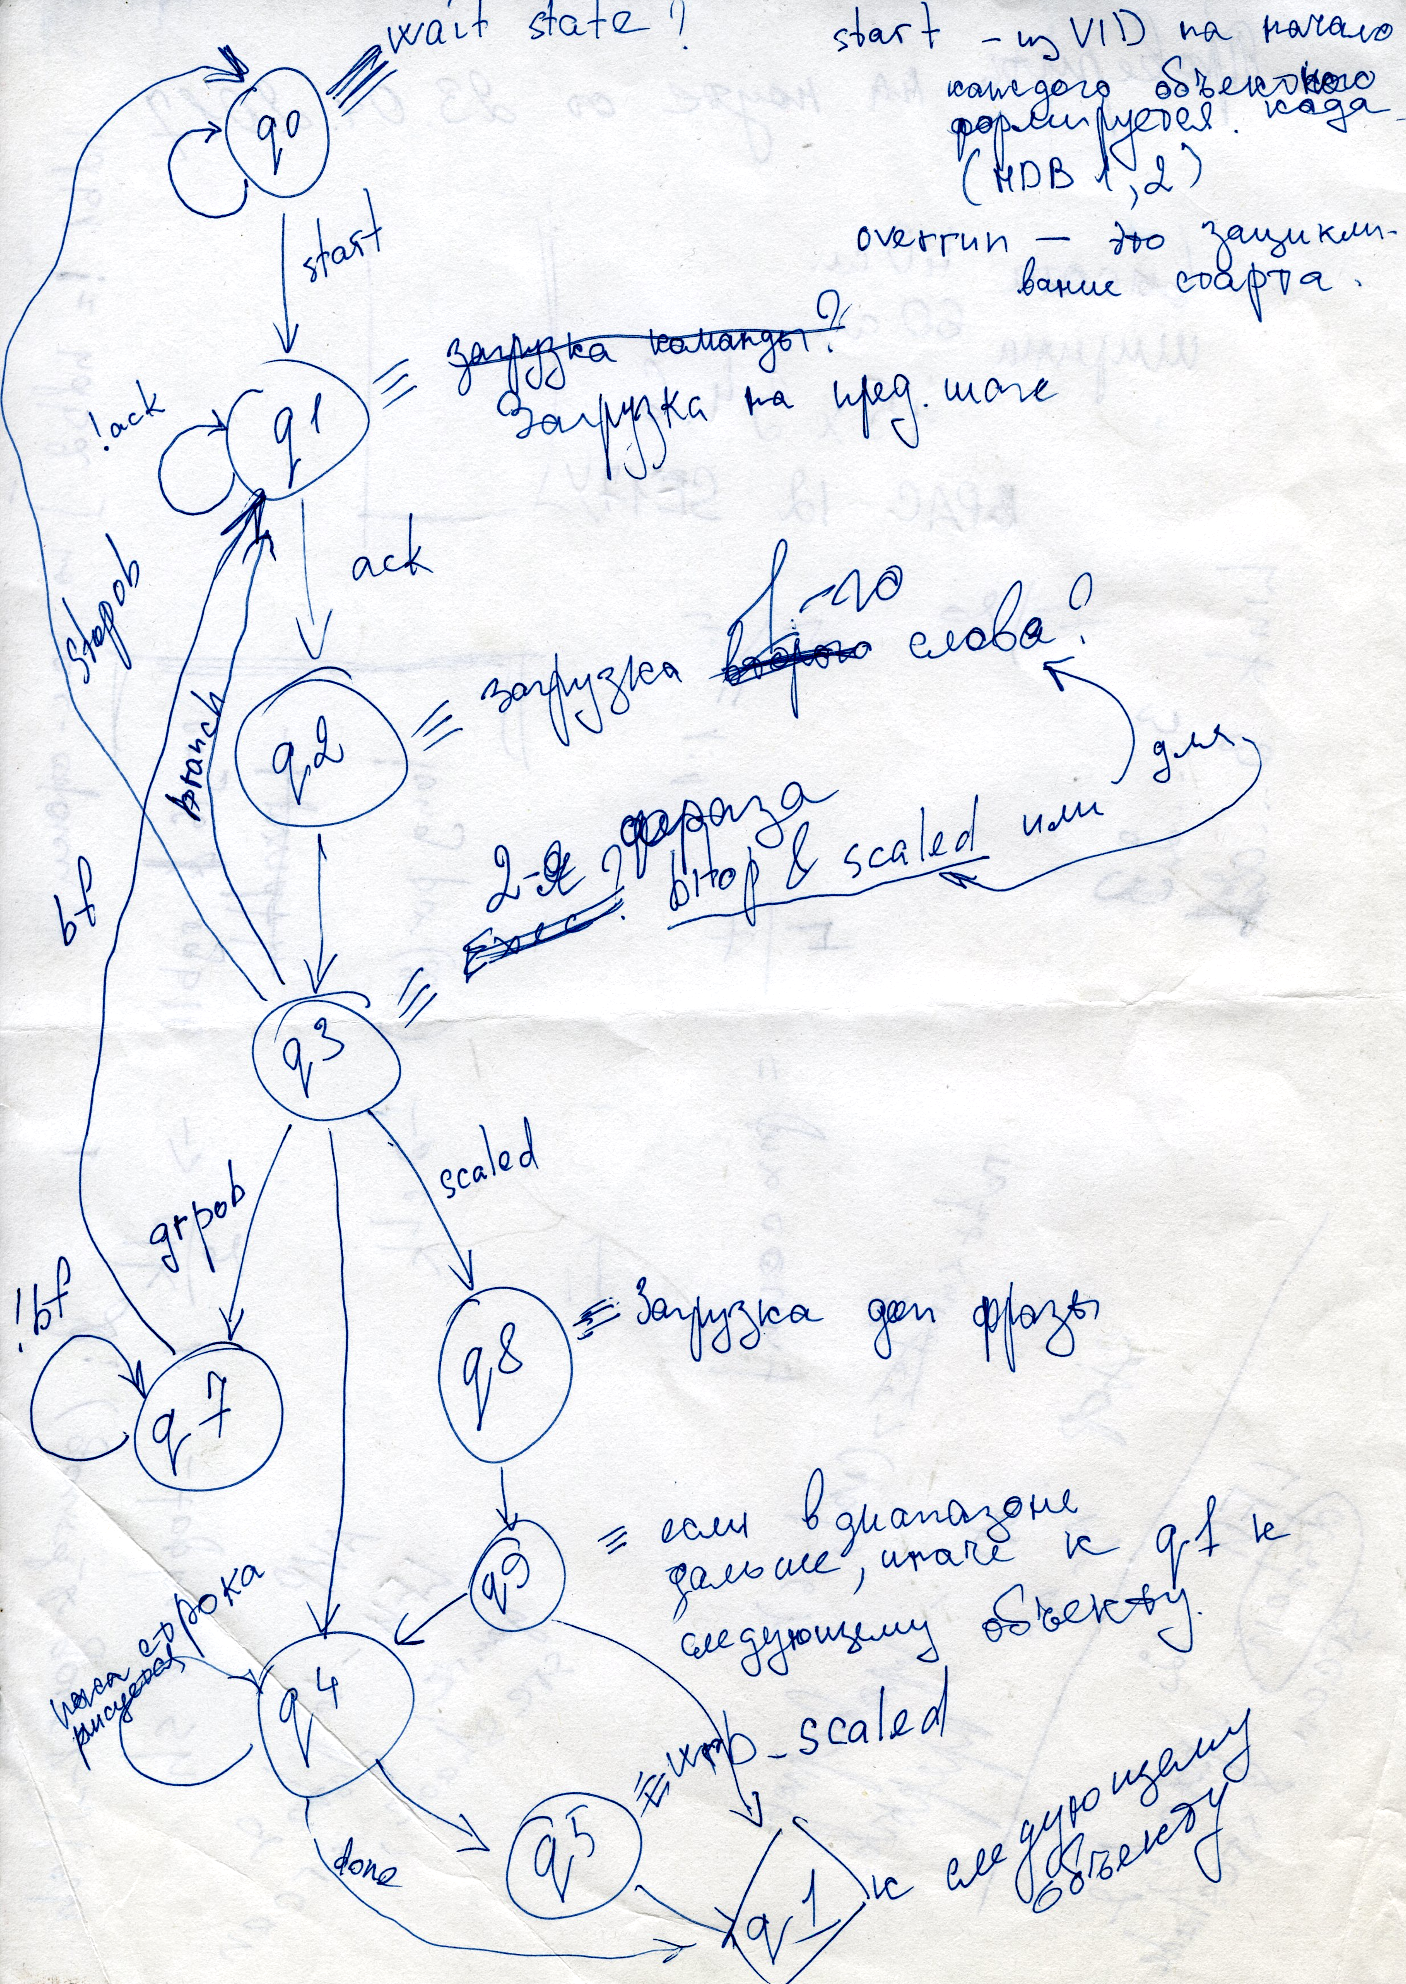 wait state?
start - из VID на начало
каждого объектного
формируется кода
(HDB 1,2)
overrun — это зацикли-
вание старта.
q0
start
загрузка команды?
Загрузка на пред. шаге
!ack
q1
ack
stopob
1-го
загрузка второго слова?
q2
для
branch
2-я фраза
Exec? bitop & scaled или
bf
q3
scaled
grpob
!bf
q8
Загрузка доп фразы
q7
если в диапазоне
дальше, иначе к q1 к
следующему объекту.
q9
пока строка
рисуется
q4
wrp_scaled
q5
done
q1
к следующему
объекту